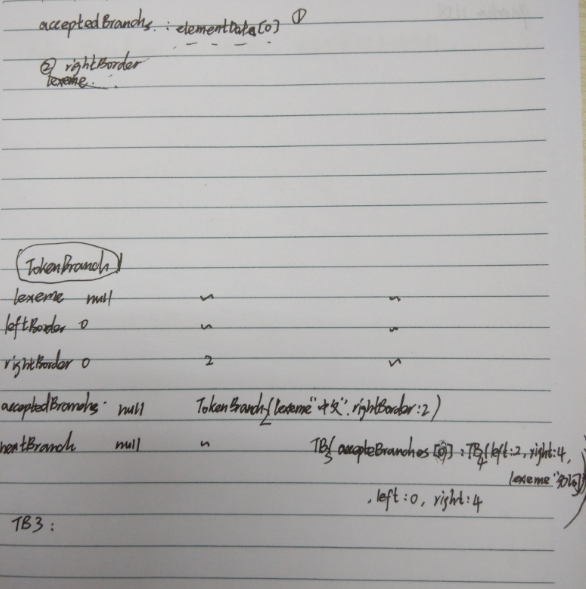 acceptedBranchs. : elementData[0] ①
② rightBorder
lexeme.
TokenBranch
lexeme null ~ ~
leftBorder 0 ~ ~
rightBorder 0 2 ~
acceptedBranchs. null TokenBranch{lexeme"中文".rightBorder:2}
nextBranch null ~ TB3{accepteBranches[0]:TB4{left:2,right:4,
lexeme"知识}}
,left:0, right:4
TB3: